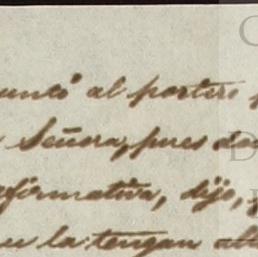 untó al portero
Señora, pues do
firmativa, dijo,
la tengan all